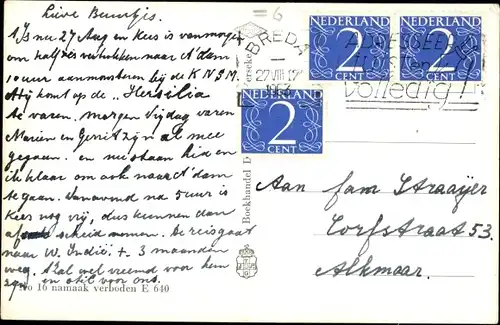 Lieve Buurtjes.
't Is nu 27 Aug en Kees is vanmorgen
om half zes vertrokken naar A'dam
10 uur aanmonsteren bij de K.N.S.M.
Hij komt op de „Hersilia
te varen. morgen Vrijdag varen
Mariën en Gerrit zijn al mee
gegaan. en nu staan hier en
ik klaar om ook naar A'dam
te gaan. Vanavond na 5 uur is
Kees nog vrij, dus kunnen dan
afscheid nemen. De reis gaat
naar W. Indië, + 3 maanden
weg. 't Zal wel vreemd voor hem
zijn en ook voor ons.
No 16 namaak verboden E 640
Boekhandel D
=6
BREDA
27 VIII 12
NEDERLAND
2
CENT
NEDERLAND
2
CENT
NEDERLAND
2
CENT
volledig!
Aan fam Straayer
Torfstraat 53.
Alkmaar.